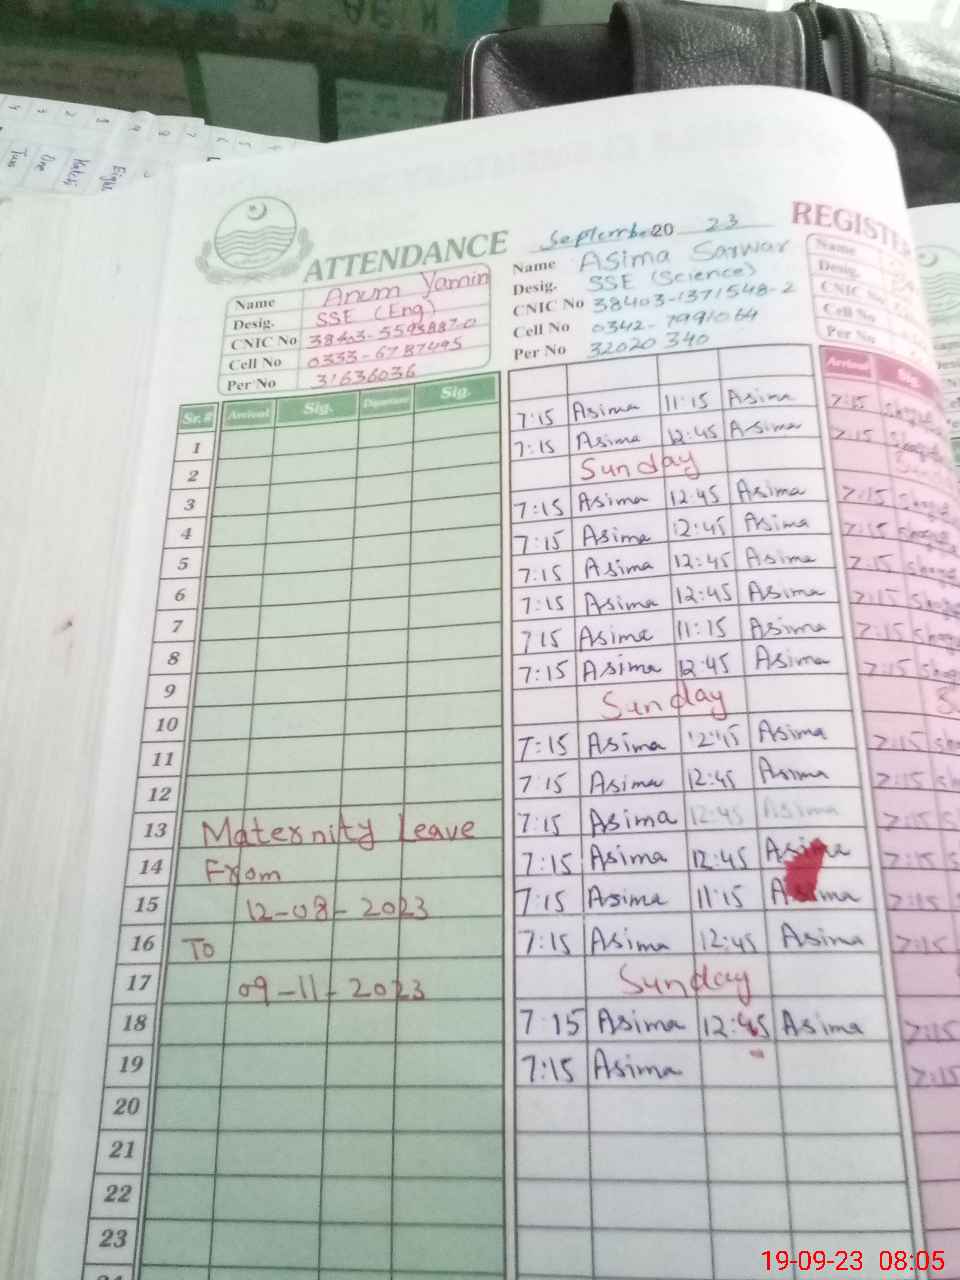 ATTENDANCE
September 20 23
REGISTE
Name Anum Yamin
Desig. SSE (Eng)
CNIC No 38403-5593887-0
Cell No 0333-6787495
Per No 31636036
Name Asima Sarwar
Desig. SSE (Science)
CNIC No 38403-1371548-2
Cell No 0342-7991064
Per No 32020340
Name
Desig.
CNIC No
Cell No
Per No
Sr. # Arrival Sig. Departure Sig.
Arrival Sig.
1 7:15 Asima 11:15 Asima 7:15
2 7:15 Asima 12:45 Asima 7:15
Sunday
3
4 7:15 Asima 12:45 Asima 7:15
5 7:15 Asima 12:45 Asima 7:15
6 7:15 Asima 12:45 Asima
7 7:15 Asima 12:45 Asima 7:15
8 715 Asima 11:15 Asima 7:15
9 7:15 Asima 12:45 Asima 7:15
10 Sunday
11 7:15 Asima 12:45 Asima 7:15
12 7:15 Asima 12:45 Asima 7:15
13 Maternity Leave 7:15 Asima 12:45 Asima 7:15
14 From 7:15 Asima 12:45 Asima 7:15
15 12-08-2023 7:15 Asima 11:15 Asima 7:15
16 To 7:15 Asima 12:45 Asima 7:15
17 09-11-2023 Sunday
18 7:15 Asima 12:45 Asima 7:15
19 7:15 Asima 7:15
20
21
22
23
19-09-23 08:05